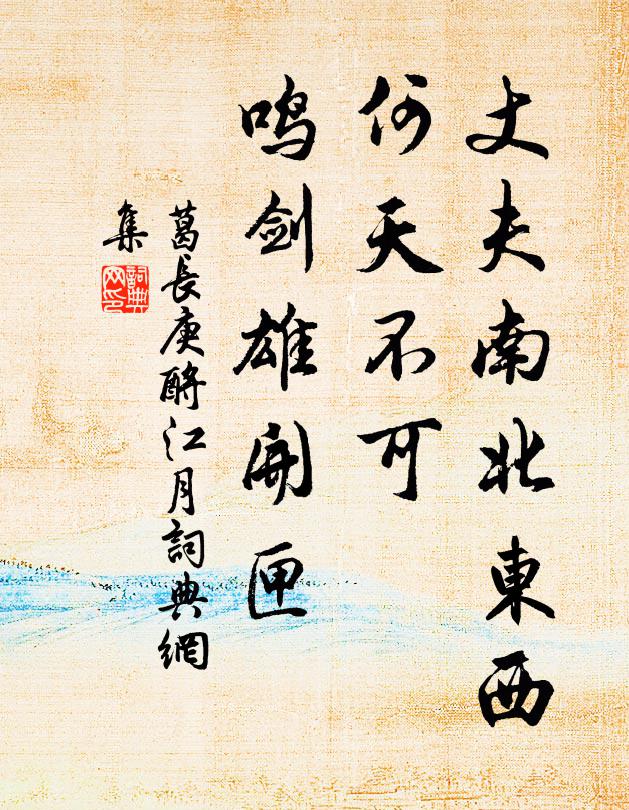 丈夫南北東西
何天不可
鸣剑雄開匣
葛長庚酹江月詞典網
集
詞典
网印